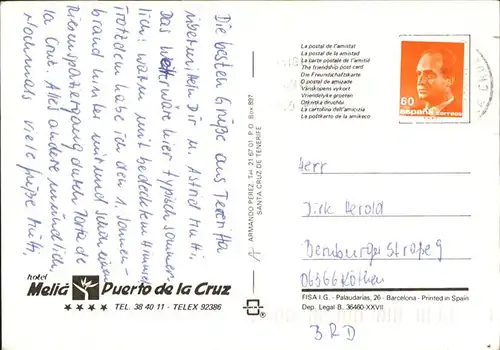 Die besten Grüße aus Teneriffa
übermitteln Dir u. Astrid Mutti,
Das Wetter wäre hier typisch sommer-
lich, warm mit bedecktem Himmel
Trotzdem habe ich den 1. Sonnen-
brand hinter mir und schon einen
Riesenspaziergang durch Porto de
la Cruz. Alles andere mündlich,
Nochmals viele Grüße Mutti,
hotel
Meliá Puerto de la Cruz
TEL. 38 40 11 - TELEX 92386
ARMANDO PEREZ, Tel 21 67 01 P.O. Box 897
SANTA CRUZ DE TENERIFE
La postal de l'amistat
La postal de la amistad
La carte postale de l'amitié
The friendship post card
Die Freundschaftskarte
O postal de amizade
Vänskapens vykort
Vriendelyke groeten
La cartolina dell'amicizia
La poŝtkarto de la amikeco
60
españa correos
Herr
Dirk Herold
Bernburger Straße 9
06366 Köthen
BRD
FISA I.G. - Palaudarias, 26 - Barcelona - Printed in Spain
Dep. Legal B. 36460-XXVII